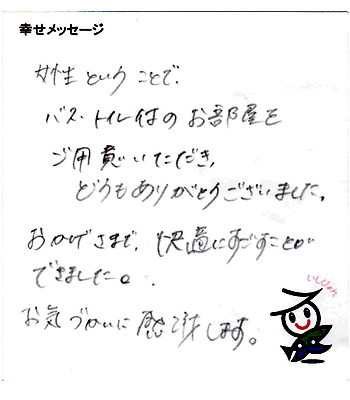 幸せメッセージ
女性ということで、
バス・トイレ付のお部屋を
ご用意いただき、
どうもありがとうございました。
おかげさまで、快適にすごすことが
できました。
お気づかいに感謝します。